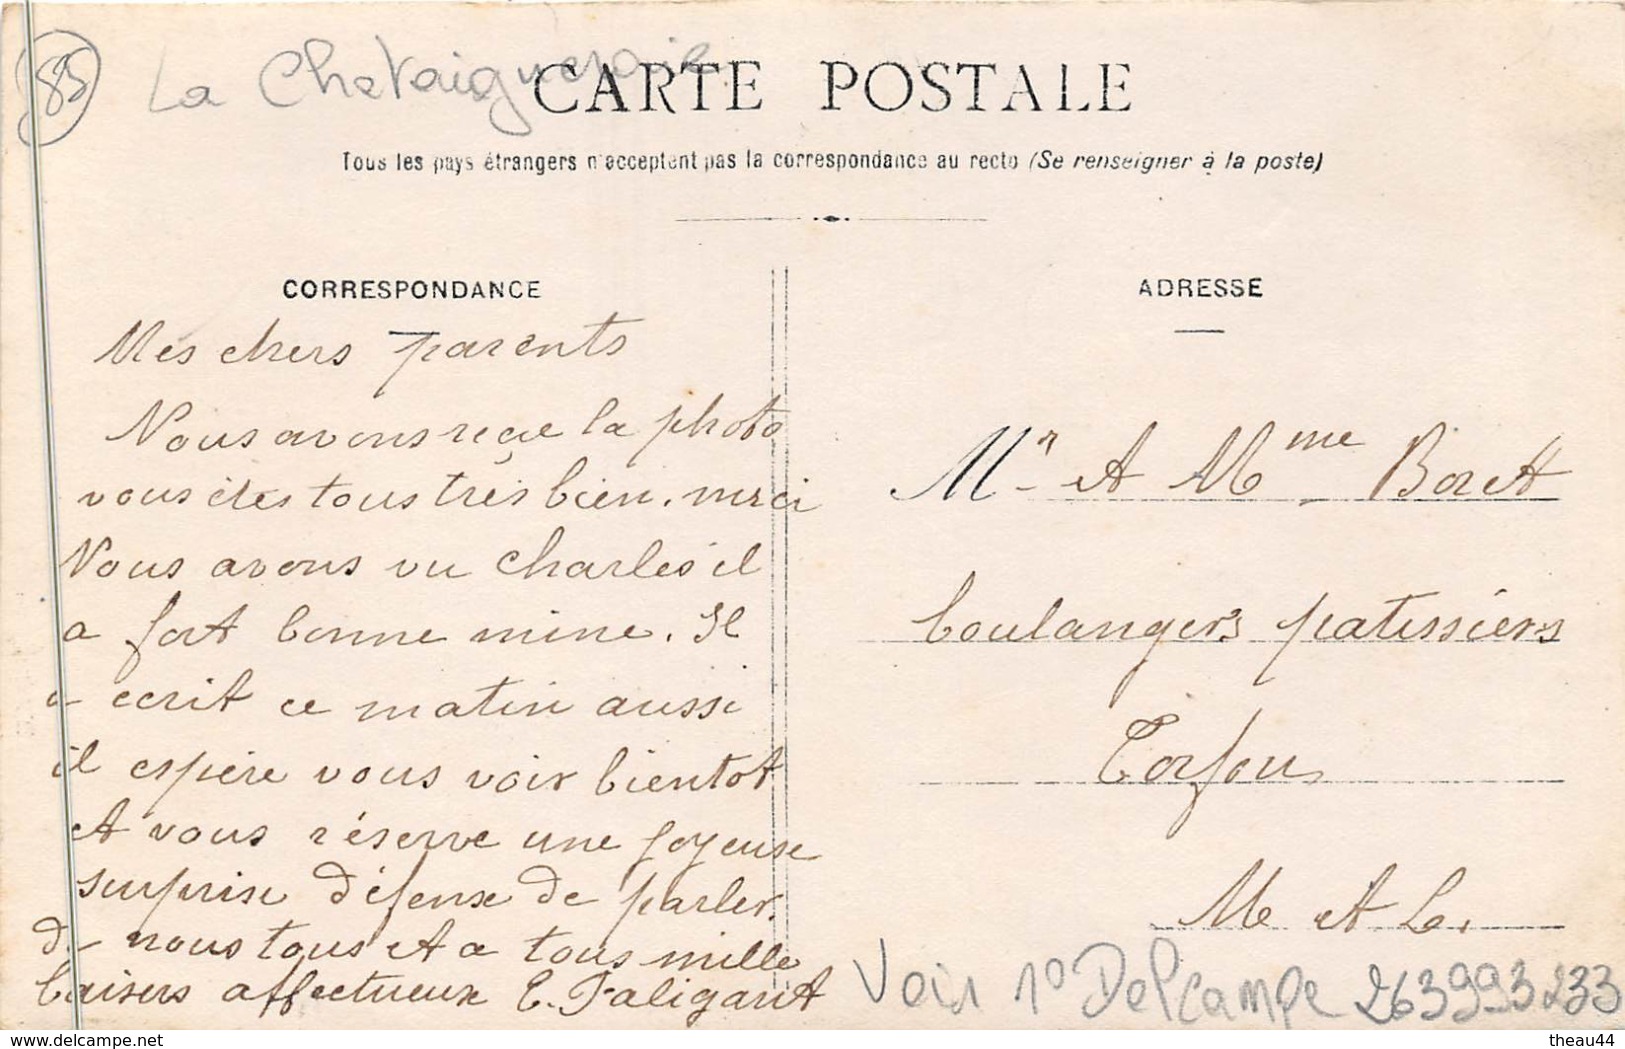 85
La Chataigneraie
CARTE POSTALE
Tous les pays étrangers n'acceptent pas la correspondance au recto (Se renseigner à la poste)
CORRESPONDANCE
Mes chers parents
Nous avons reçue la photo
vous étes tous très bien. merci
Nous avons vu Charles il
a fort bonne mine. Il
a ecrit ce matin aussi
il espère vous voir bientot
et vous réserve une joyeuse
surprise défense de parler.
De nous tous et a tous mille
baisers affectueux E. Faligant
ADRESSE
Mr et Mme Borett
boulangers patissiers
Torfou
M et L.
Voir 1° Delcampe 263993233
www.delcampe.net
theau44